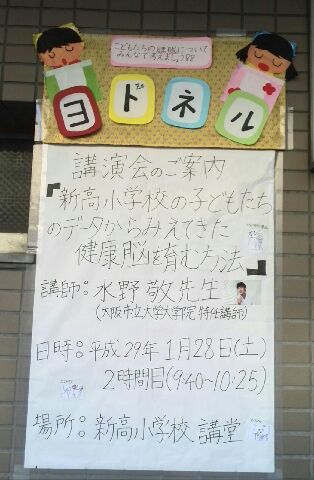 こどもたちの睡眠について
みんなで考えましょう
ヨドネル
講演会のご案内
『新高小学校の子どもたち
のデータからみえてきた
健康脳を育む方法』
講師：水野敬先生
(大阪市立大学大学院 特任講師)
日時：平成29年1月28日(土)
2時間目(9:40~10:25)
場所：新高小学校 講堂